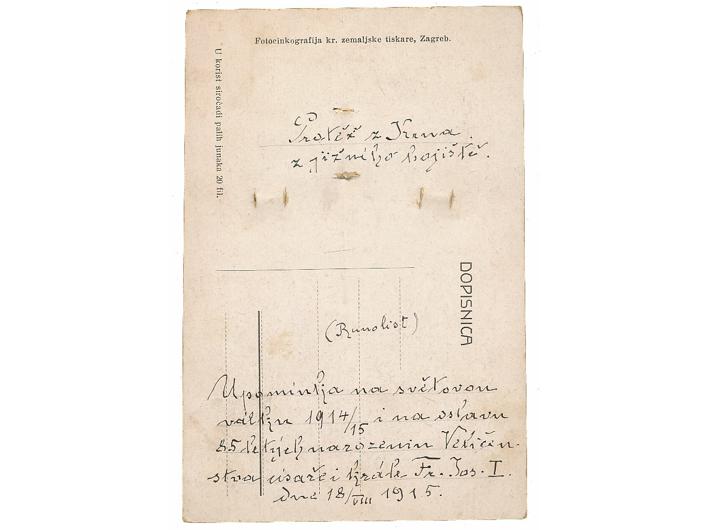 Fotocinkografija kr. zemaljske tiskare, Zagreb.
U korist siročadi palih junaka 20 fil.
Protěž z Krna.
z jižního bojiště.
DOPISNICA
(Runolist)
Upomínka na světovou
válku 1914/15 i na oslavu
85 letých narozenin Veličen-
stva císaře i krále Fr. Jos. I.
dne 18/VIII 1915.